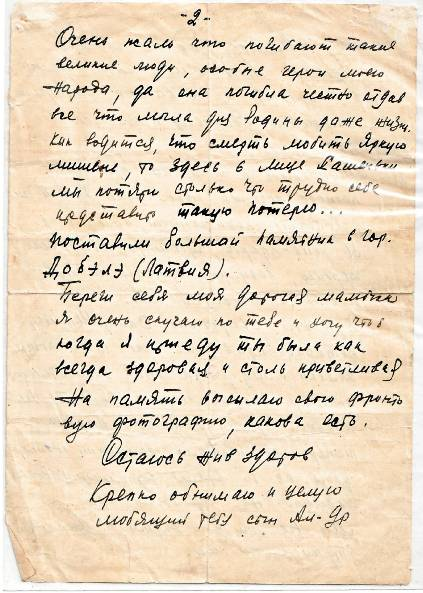 -2-
Очень жаль что погибают такие
великие люди, особые герои моего
народа, да она погибла честно отдав
все что могла для родины даже жизнь.
Как водится, что смерть любить яркую
мишень, то здесь в лице Пашеньки
мы потеряли столько что трудно себе
представить такую потерю...
Поставили большай памятник в гор.
Добэлэ (Латвия).
Береги себя моя дорогая мамочка
я очень скучаю по тебе и хочу чтоб
когда я приеду ты была как
всегда здоровая и столь приветливая
На память высылаю свою фронто
вую фотографию, какова есть.
Остаюсь жив здоров
Крепко обнимаю и целую
любящий тебя сын Ал-др